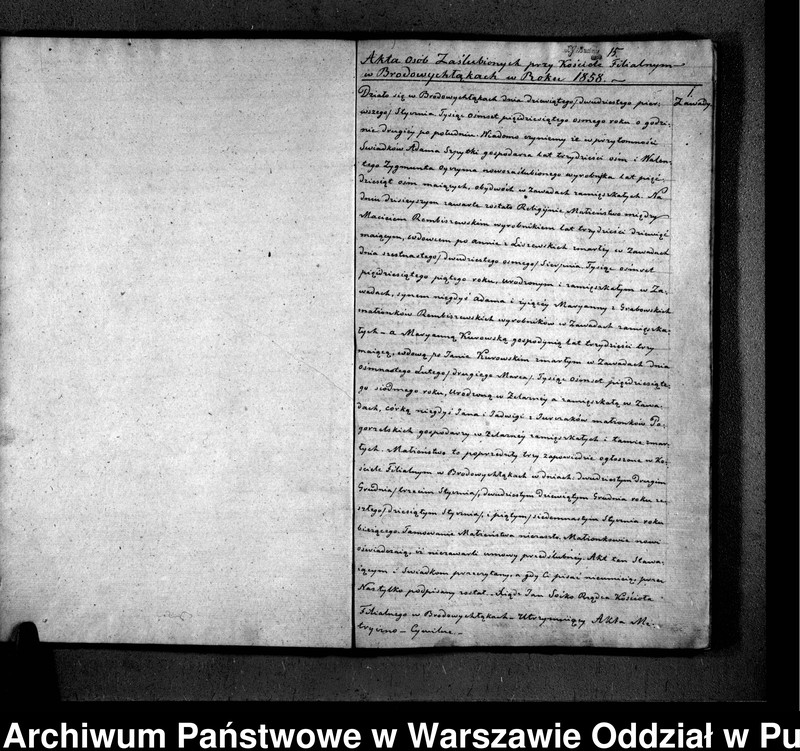 15.
Akta Osób Zaślubionych przy Kościele Filialnym
w Brodowychłąkach w Roku 1858.
1.
Zawady.
Działo się w Brodowychłąkach dnia dziewiątego/dwudziestego pier-
wszego/ Stycznia Tysiąc ośmset pięćdziesiątego osmego roku o godzi-
nie drugiey po południu. Wiadomo czyniemy iż w przytomności
Swiadków Adama Szpytki gospodarza lat trzydzieści osm i Walen-
tego Zygmunta Oyczyma nowozaślubionego wyrobnika lat pięć-
dziesiąt osm maiących, obydwóch w Zawadach zamięszkałych. Na
dniu dzisieyszym zawarte zostało Religijnie Małżeństwo między
Macieiem Rembiszewskim wyrobnikiem lat trzydzieści dziewięć
maiącym, wdowcem po Annie z Liszewskich zmarłey w Zawadach
dnia szesnastego/dwudziestego osmego/ Sierpnia Tysiąc ośmset
pięćdziesiątego piątego roku, urodzonym i zamięszkałym w Za-
wadach, synem niegdyś Adama i żyiącéy Maryanny z Grabowskich
małżonków Rembiszewskich wyrobników w Zawadach zamięszka-
łych – a Maryanną Kurowską gospodynią lat trzydzieści trzy
maiącą, wdową po Janie Kurowskim zmarłym w Zawadach dnia
osmnastego Lutego/drugiego Marca/ Tysiąc ośmset pięćdziesiąte-
go siódmego roku, Urodzoną w Zelaznéy a zamięszkałą w Zawa-
dach, córką niegdyś Jana i Jadwigi z małżonków
gospodarzy w Zelaznéy zamięszkałych i tamże zmar-
łych. Małżeństwo to poprzedziły trzy zapowiedzie ogłoszone w Ko-
ściele Filialnym w Brodowychłąkach w dniach: dwudziestym drugim
Grudnia/trzecim Stycznia/, dwudziestym dziewiątym Grudnia roku ze-
szłego/dziesiątym Stycznia/, i piątym/siedemnastym Stycznia roku
bieżącego. Tamowanie Małżeństwa niezaszło. Małżonkowie nowi
oświadczaią, iż niezawarli umowy przedślubnéy. Akt ten Stawa-
iącym i Swiadkom przeczytany, a gdy Ci pisać nieumieią, przez
Nas tylko podpisany został. Xiądz Jan Soiko Rządca Kościoła
Filialnego w Brodowychłąkach – Utrzymuiący Akta Me-
tryczno – Cywilne. –
Archiwum Państwowe w Warszawie Oddział w Pu